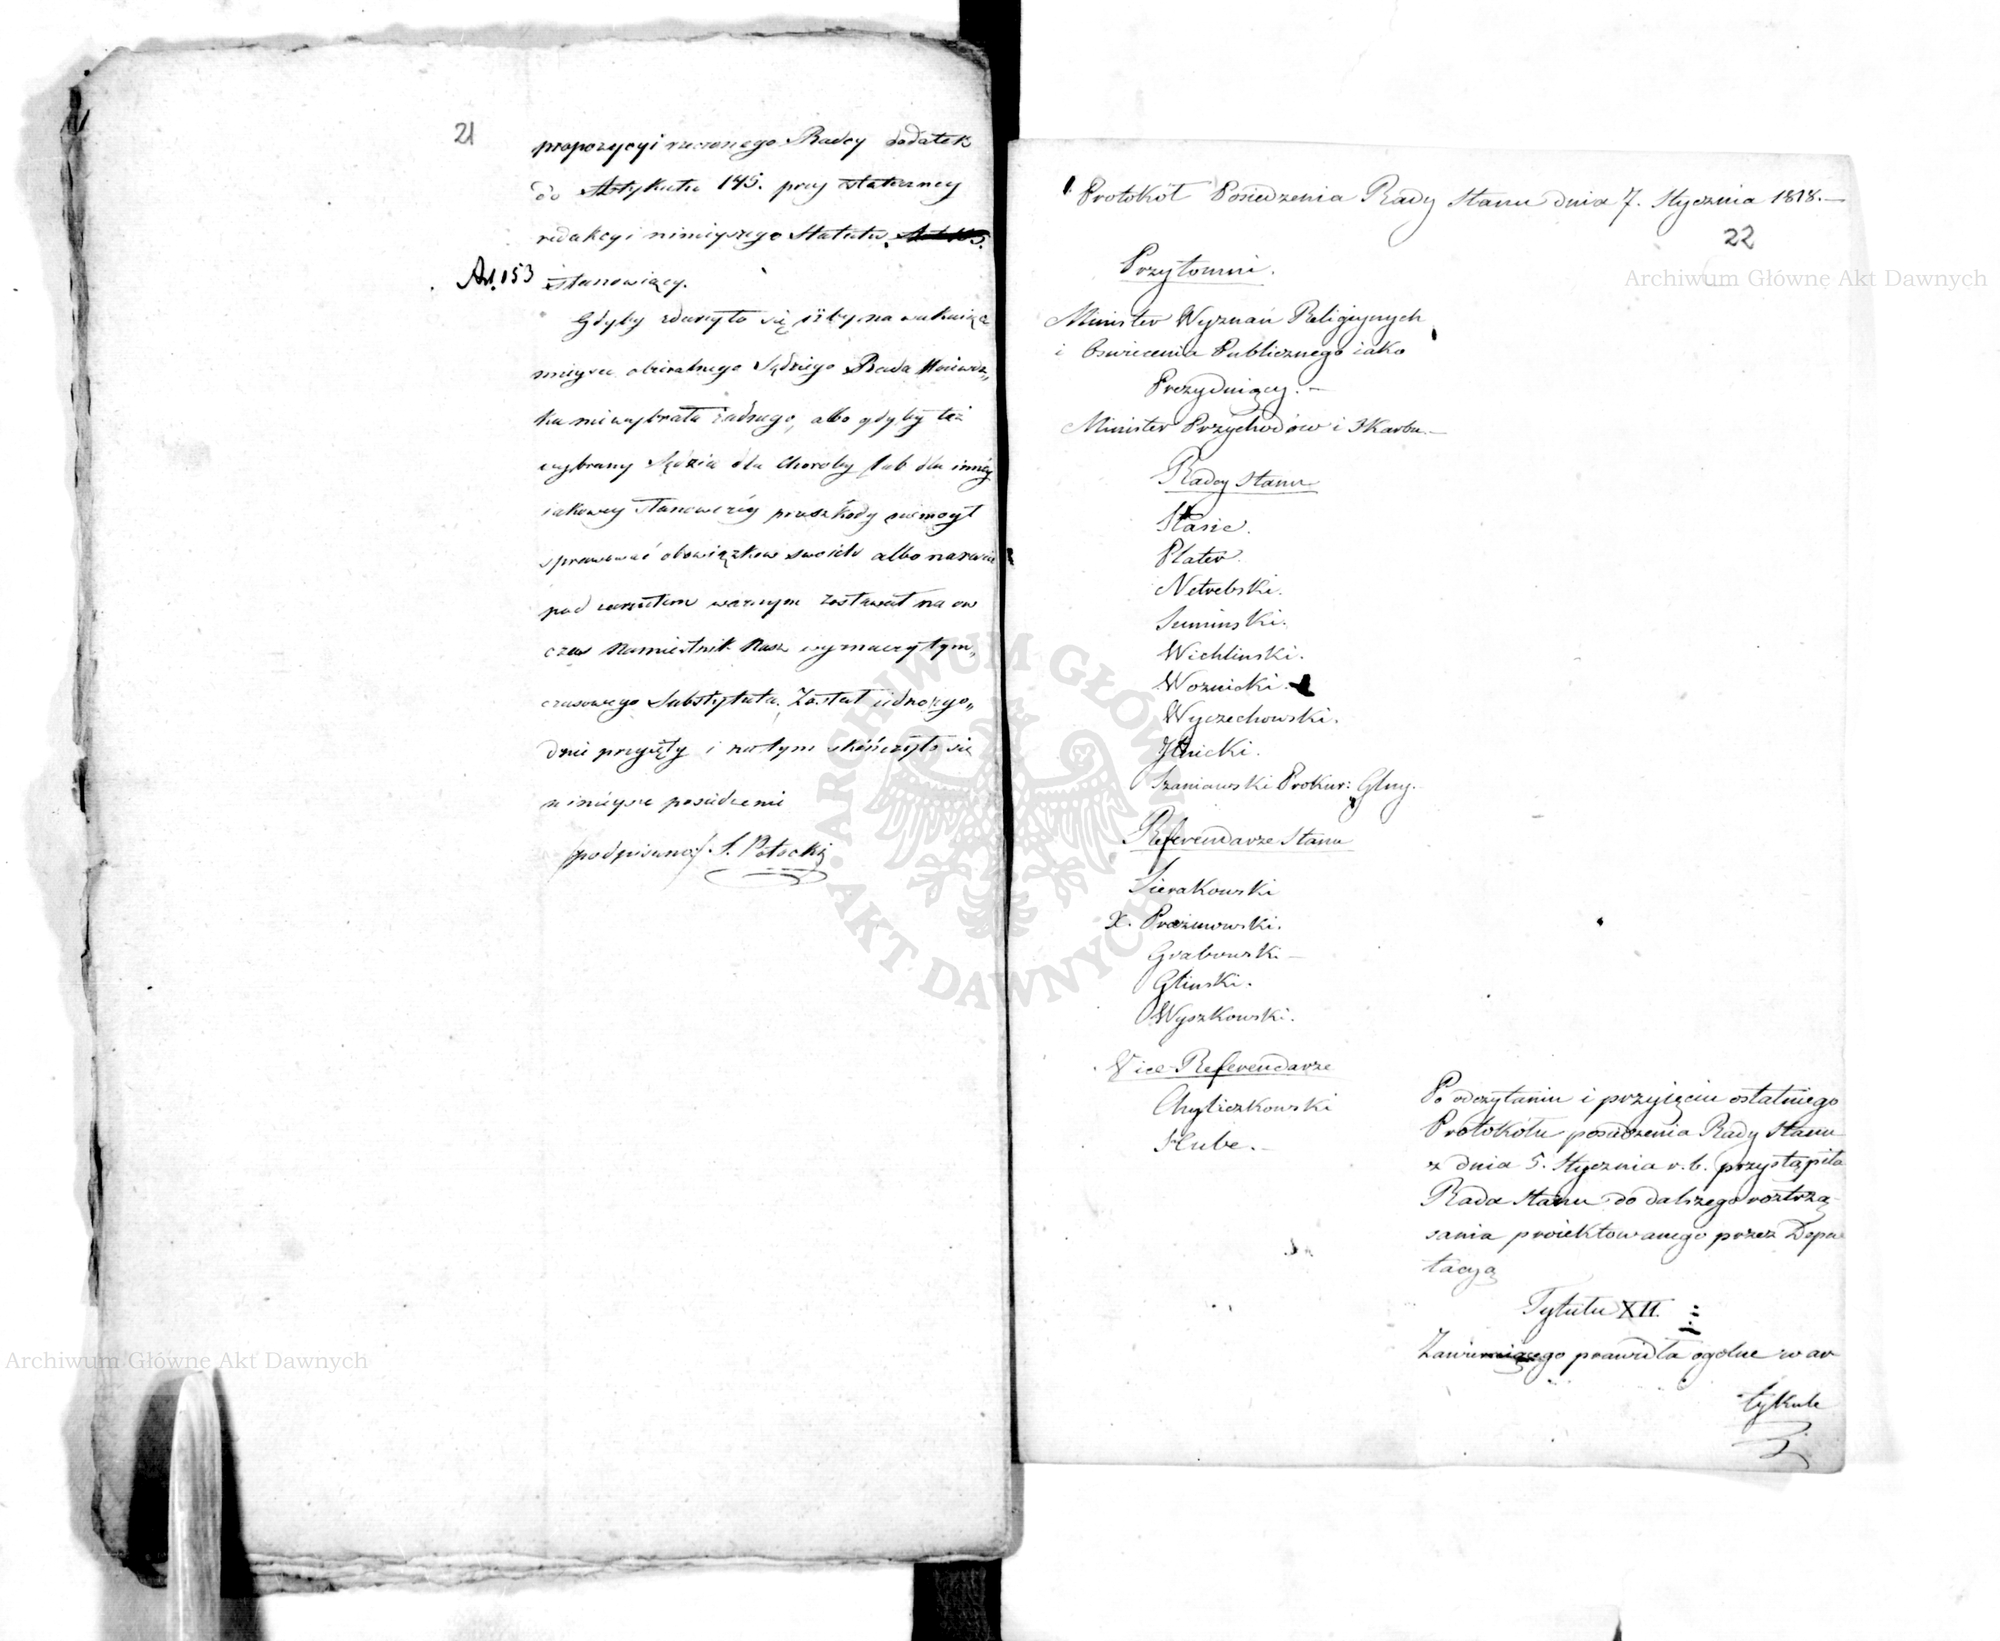 21
propozycyi rzeczonego Radcy dodatek
do Artykułu 145. przy statecznej
redakcyi ninieyszego Statutu
Art. 153 stanowiący.
Gdyby zdarzyło się iżby na wakuiące
mieysce obieralnego Sędziego Rada Woiewódz„
ka niewybrała żadnego, albo gdyby też
wybrany Sędzia dla choroby lub dla inney
iakowey stanowczéy przeszkody niemógł
sprawować obowiązkow swoich albo
pod zarzutem ważnym zostawał na ow
czas Namiestnik Nasz wyznaczy tym„
czasowego Substytuta. Został iednozgo„
dnie przyięty i na tym skończyło się
ninieysze posiedzenie
/podpisano/ S. Potocki
Protokół Posiedzenia Rady Stanu dnia 7. Stycznia 1818.—
22
Przytomni.
Minister Wyznań Religiynych
i Oświecenia Publicznego iako
Prezyduiący.—
Minister Przychodów i Skarbu.—
Radcy Stanu
Stasic.
Plater.
Netrebski.
Sumiński.
Wichlinski.
Woznicki.
Wyczechowski.
Szaniawski Prokur: Glny.
Referendarze Stanu
Sierakowski
X. Prażmowski.
Grabowski—
Gliński.
Wyszkowski.
Vice-Referendarze
Chyliczkowski
Hube.—
Po odczytaniu i przyięciu ostatniego
Protokółu posiedzenia Rady Stanu
z dnia 5. Stycznia r. b. przystąpiła
Rada Stanu do dalszego roztrzą-
sania proiektowanego przez Depu
tacyą
Tytułu XII.
Zawieraiącego prawidła ogólne w ar
tykule
Archiwum Główne Akt Dawnych
Archiwum Główne Akt Dawnych
ARCHIWUM GŁÓWNE AKT DAWNYCH